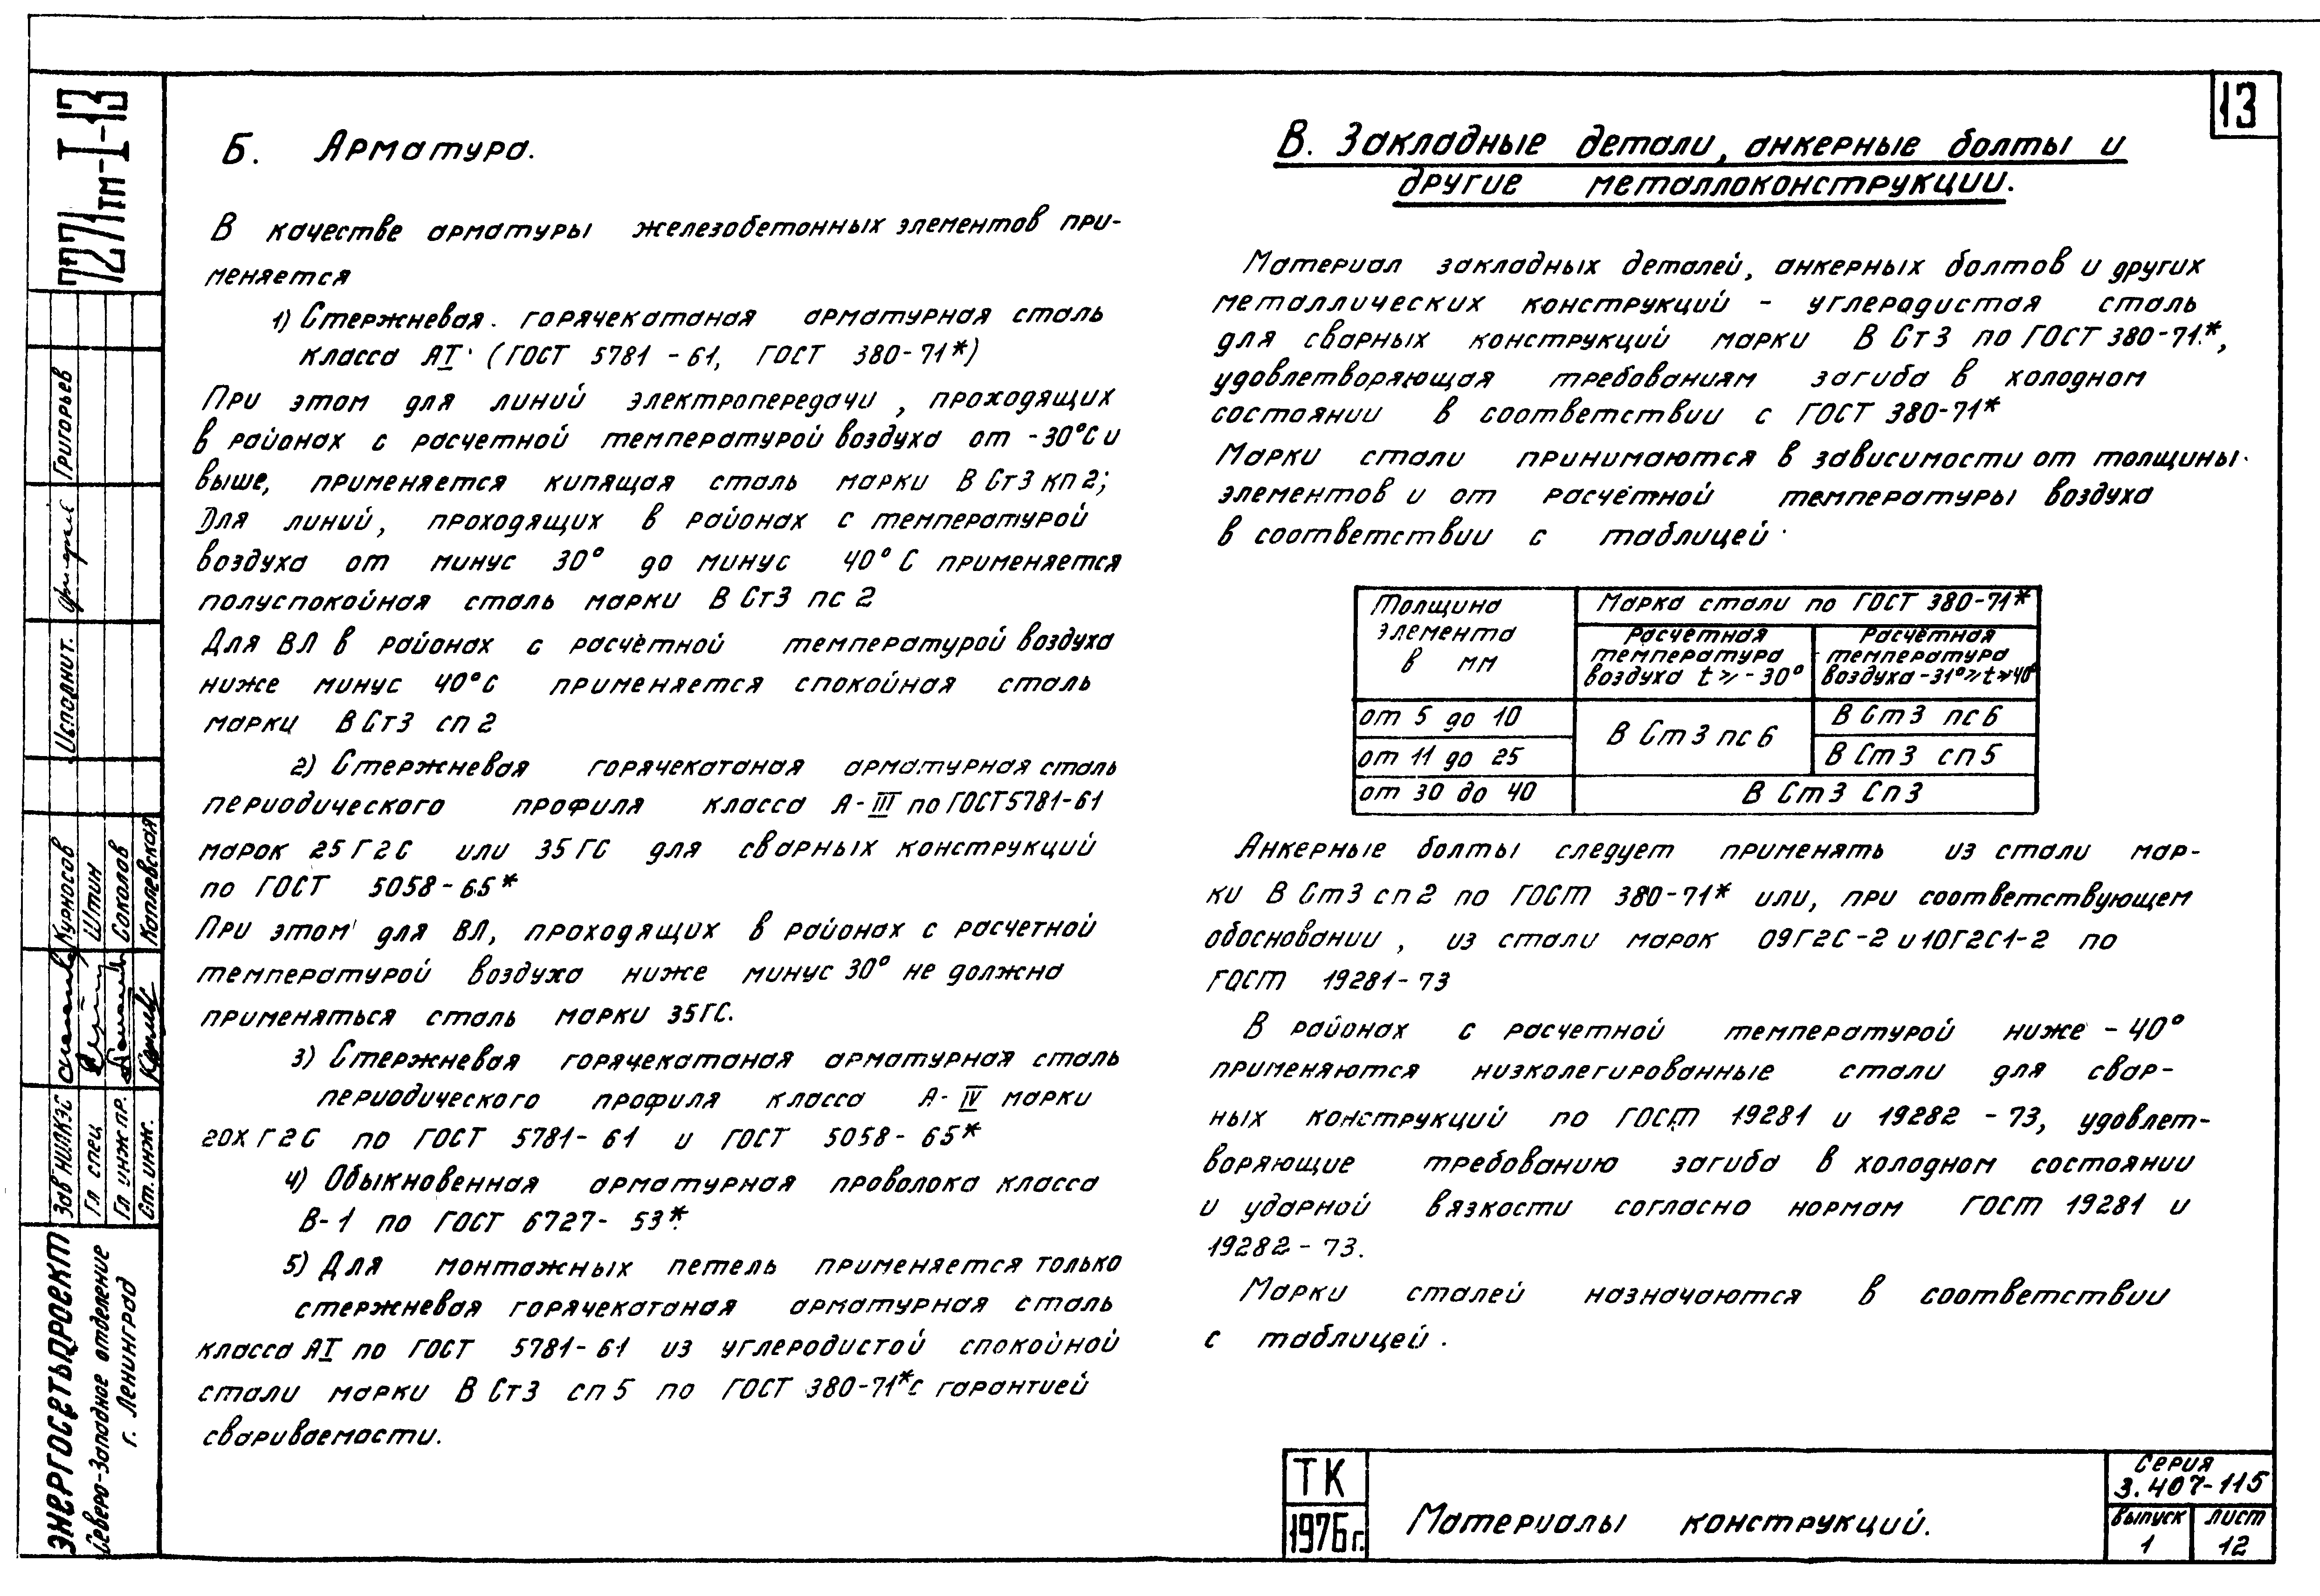 13
7271тм-I-13
Б. Арматура.
В качестве арматуры железобетонных элементов при-
меняется
1) Стержневая. горячекатаная арматурная сталь
класса АI (ГОСТ 5781-61, ГОСТ 380-71*)
При этом для линий электропередачи, проходящих
в районах с расчетной температурой воздуха от -30°С и
выше, применяется кипящая сталь марки В Ст3 кп2;
Для линий, проходящих в районах с температурой
воздуха от минус 30° до минус 40°С применяется
полуспокойная сталь марки В Ст3 пс 2
Для ВЛ в районах с расчётной температурой воздуха
ниже минус 40°С применяется спокойная сталь
марки В Ст3 сп2
2) Стержневая горячекатаная арматурная сталь
периодического профиля класса А-III по ГОСТ 5781-61
марок 25Г2С или 35ГС для сварных конструкций
по ГОСТ 5058-65*
При этом для ВЛ, проходящих в районах с расчетной
температурой воздуха ниже минус 30° не должна
применяться сталь марки 35ГС.
3) Стержневая горячекатаная арматурная сталь
периодического профиля класса А-IV марки
20ХГ2С по ГОСТ 5781-61 и ГОСТ 5058-65*
4) Обыкновенная арматурная проволока класса
В-1 по ГОСТ 6727-53*
5) Для монтажных петель применяется только
стержневая горячекатаная арматурная сталь
класса АI по ГОСТ 5781-61 из углеродистой спокойной
стали марки В Ст3 сп5 по ГОСТ 380-71* с гарантией
свариваемости.
В. Закладные детали, анкерные болты и
другие металлоконструкции.
Материал закладных деталей, анкерных болтов и других
металлических конструкций - углеродистая сталь
для сварных конструкций марки В Ст3 по ГОСТ 380-71*,
удовлетворяющая требованиям загиба в холодном
состоянии в соответствии с ГОСТ 380-71*
Марки стали принимаются в зависимости от толщины
элементов и от расчётной температуры воздуха
в соответствии с таблицей
Толщина
элемента
в мм
Марка стали по ГОСТ 380-71*
Расчетная
температура
воздуха t ⩾ -30°
Расчётная
температура
воздуха -31° ⩾ t ⩾ 40°
от 5 до 10
В Ст3 пс6
В Ст3 пс6
от 11 до 25
В Ст3 сп5
от 30 до 40
В Ст3 Сп3
Анкерные болты следует применять из стали мар-
ки В Ст3 сп2 по ГОСТ 380-71* или, при соответствующем
обосновании, из стали марок 09Г2С-2 и 10Г2С1-2 по
ГОСТ 19281-73
В районах с расчетной температурой ниже -40°
применяются низколегированные стали для свар-
ных конструкций по ГОСТ 19281 и 19282-73, удовлет-
воряющие требованию загиба в холодном состоянии
и ударной вязкости согласно нормам ГОСТ 19281 и
19282-73.
Марки сталей назначаются в соответствии
с таблицей.
ТК
1976г.
Материалы конструкций.
Серия
3.407-115
Выпуск
1
лист
12
Исполнит.
Григорьев
Зав НИЛКЭС
Курносов
Гл спец
Штин
Гл инж пр.
Соколов
Ст. инж.
Каплевская
ЭНЕРГОСЕТЬПРОЕКТ
Северо-Западное отделение
г. Ленинград